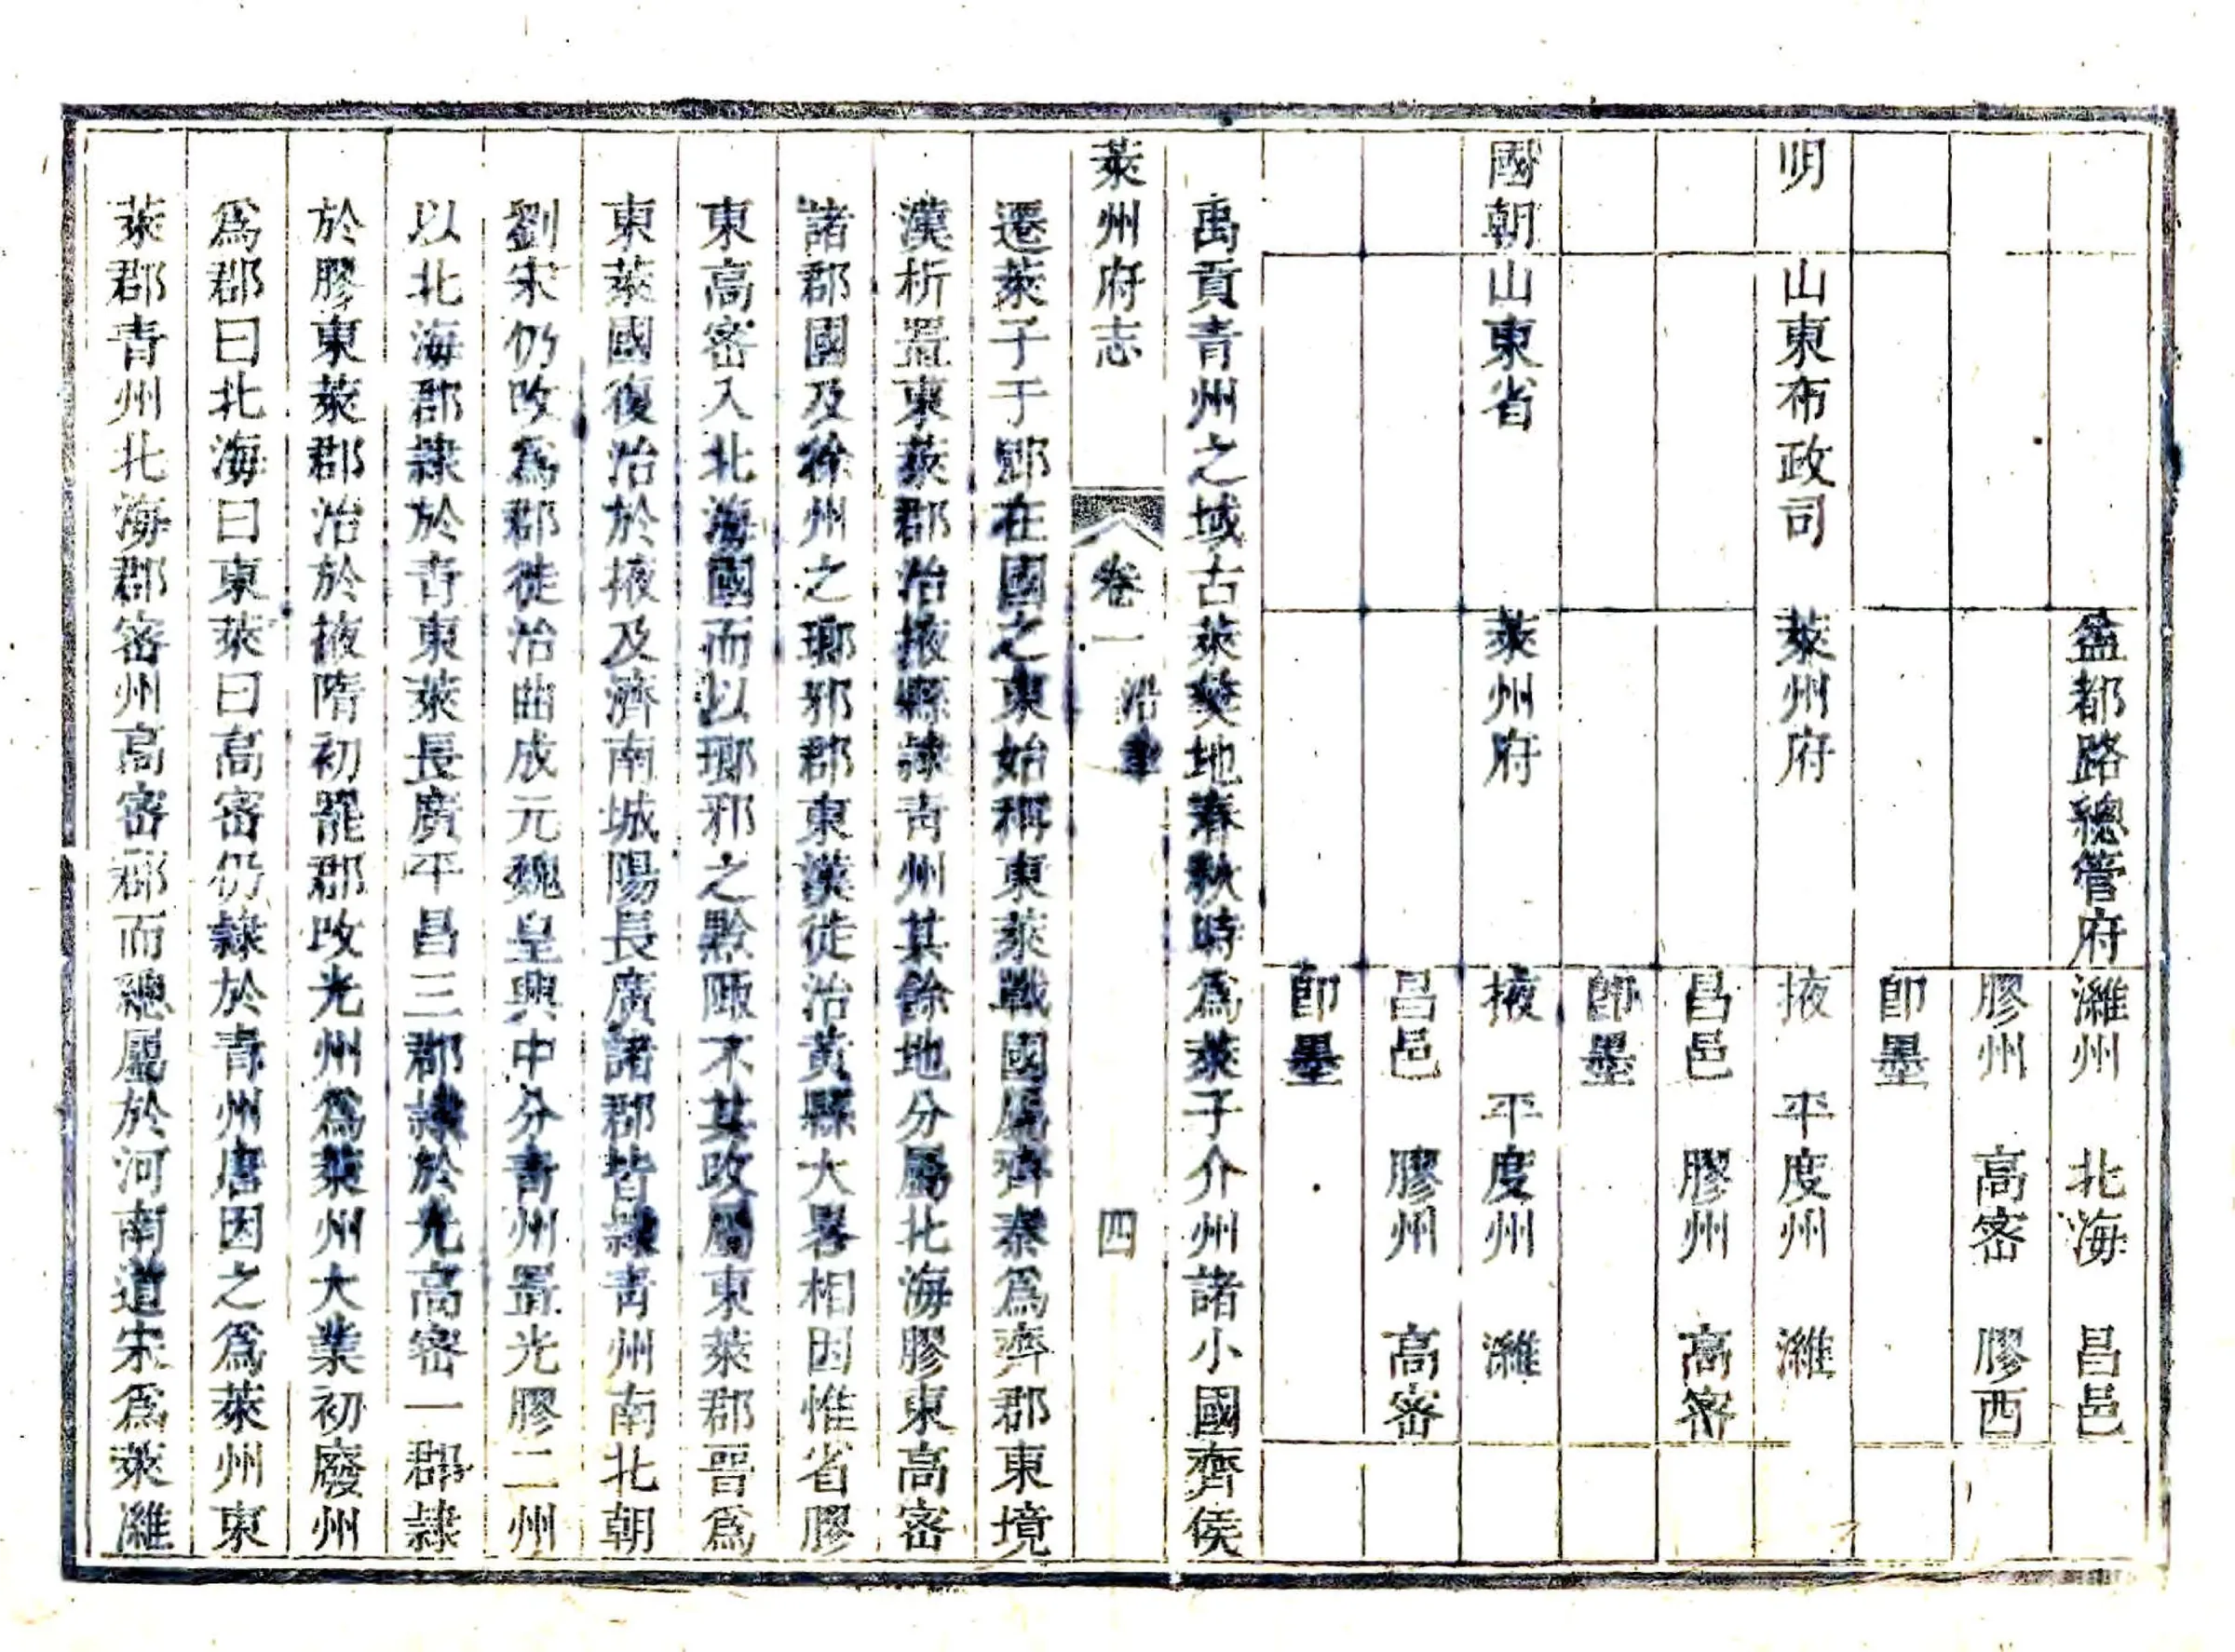 益都路總管府 濰州 北海 昌邑
膠州 高密 膠西
卽墨
明 山東布政司 萊州府 掖 平度州 濰
昌邑 膠州 高密
卽墨
國朝 山東省 萊州府 掖 平度州 濰
昌邑 膠州 高密
卽墨
禹貢青州之域古萊夷地春秋時爲萊子介州諸小國齊侯
萊州府志 卷一 沿革 四
遷萊子于郳在國之東始稱東萊戰國屬齊秦爲齊郡東境
漢析置東萊郡治掖縣隷青州其餘地分屬北海膠東高密
諸郡國及徐州之瑯邪郡東漢徙治黃縣大畧相因惟省膠
東高密入北海國而以瑯邪之黔陬不其改屬東萊郡晉爲
東萊國復治於掖及濟南城陽長廣諸郡皆隷青州南北朝
劉宋仍改爲郡徙治曲成元魏皇興中分青州置光膠二州
以北海郡隷於青東萊長廣平昌三郡隷於光高密一郡隷
於膠東萊郡治於掖隋初罷郡改光州爲萊州大業初廢州
爲郡曰北海曰東萊曰高密仍隷於青州唐因之爲萊州東
萊郡青州北海郡密州高密郡而總屬於河南道宋爲萊濰